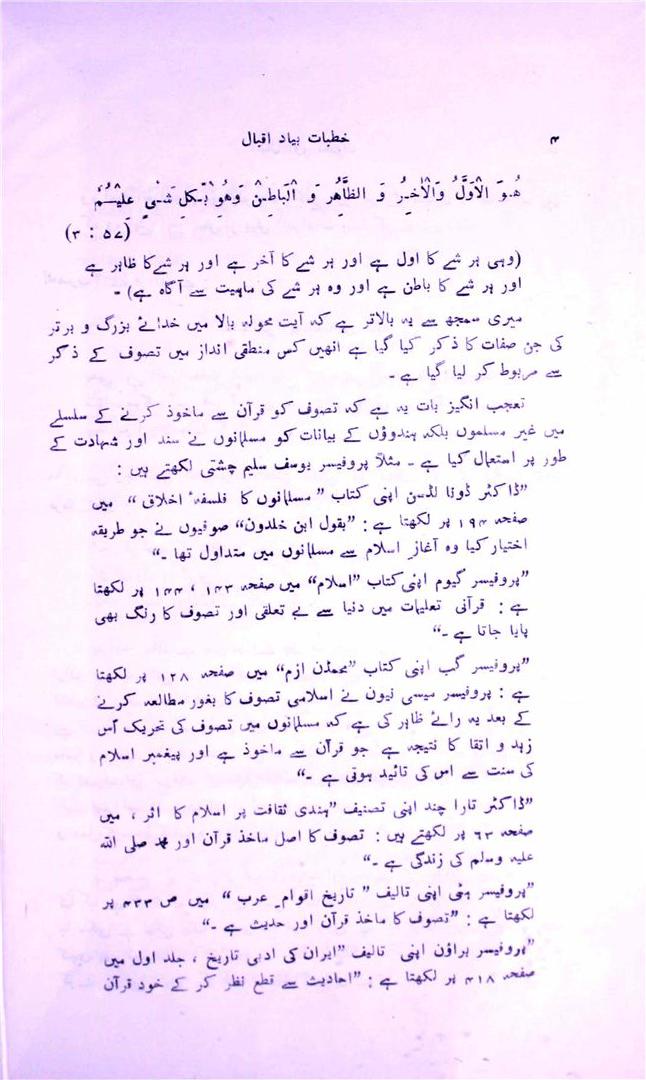 ۴ خطبات بیاد اقبال
هُوَ الْاَوَّلُ وَالْاٰخِرُ وَ الظَّاهِرُ وَ الْبَاطِنُ وَهُوَ بِكُلِّ شَیْءٍ عَلِیْمٌ
(۵۷ : ۳)
(وہی ہر شے کا اول ہے اور ہر شے کا آخر ہے اور ہر شے کا ظاہر ہے
اور ہر شے کا باطن ہے اور وہ ہر شے کی ماہیت سے آگاہ ہے) ۔
میری سمجھ سے یہ بالاتر ہے کہ آیت محولہ بالا میں خدائے بزرگ و برتر
کی جن صفات کا ذکر کیا گیا ہے انھیں کس منطقی انداز میں تصوف کے ذکر
سے مربوط کر لیا گیا ہے ۔
تعجب انگیز بات یہ ہے کہ تصوف کو قرآن سے ماخوذ کرنے کے سلسلے
میں غیر مسلموں بلکہ ہندوؤں کے بیانات کو مسلمانوں نے سند اور شہادت کے
طور پر استعمال کیا ہے ۔ مثلاً پروفیسر یوسف سلیم چشتی لکھتے ہیں :
”ڈاکٹر ڈونا لڈسن اپنی کتاب ” مسلمانوں کا فلسفۂ اخلاق “ میں
صفحہ ۱۹۴ پر لکھتا ہے : ”بقول ابن خلدون“ صوفیوں نے جو طریقہ
اختیار کیا وہ آغازِ اسلام سے مسلمانوں میں متداول تھا ۔“
”پروفیسر گیوم اپنی کتاب ”اسلام“ میں صفحہ ۱۴۳ ، ۱۴۴ پر لکھتا
ہے : قرآنی تعلیمات میں دنیا سے بے تعلقی اور تصوف کا رنگ بھی
پایا جاتا ہے ۔“
”پروفیسر گب اپنی کتاب ”محمڈن ازم“ میں صفحہ ۱۲۸ پر لکھتا
ہے : پروفیسر میسی نیون نے اسلامی تصوف کا بغور مطالعہ کرنے
کے بعد یہ رائے ظاہر کی ہے کہ مسلمانوں میں تصوف کی تحریک اُس
زہد و اتقا کا نتیجہ ہے جو قرآن سے ماخوذ ہے اور پیغمبر اسلام
کی سنت سے اس کی تائید ہوتی ہے ۔“
”ڈاکٹر تارا چند اپنی تصنیف ”ہندی ثقافت پر اسلام کا اثر ، میں
صفحہ ۶۳ پر لکھتے ہیں : تصوف کا اصل ماخذ قرآن اور محمد صلی اللہ
علیہ وسلم کی زندگی ہے ۔“
”پروفیسر ہٹی اپنی تالیف ” تاریخ اقوامِ عرب “ میں ص ۴۳۳ پر
لکھتا ہے : ”تصوف کا ماخذ قرآن اور حدیث ہے ۔“
”پروفیسر براؤن اپنی تالیف ”ایران کی ادبی تاریخ ، جلد اول میں
صفحہ ۴۱۸ پر لکھتا ہے : ”احادیث سے قطع نظر کر کے خود قرآن